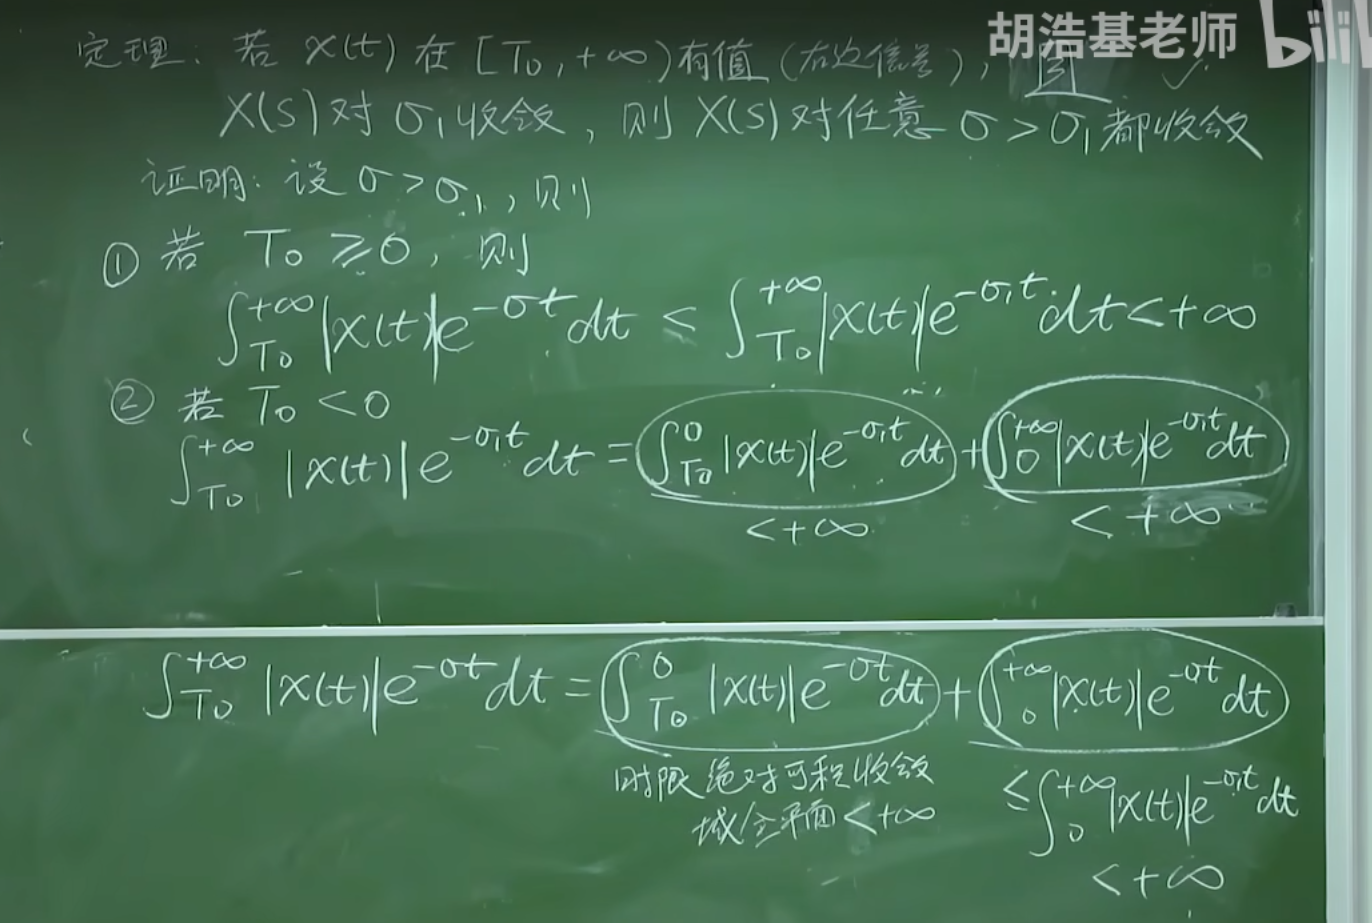 胡浩基老师 bili
定理: 若 x(t) 在 [T₀, +∞) 有值 (右边信号), 且
X(s) 对 σ₁ 收敛, 则 X(s) 对任意 σ > σ₁ 都收敛
证明: 设 σ > σ₁, 则
① 若 T₀ ≥ 0, 则
∫_{T₀}^{+∞} |x(t)| e^{-σt} dt ≤ ∫_{T₀}^{+∞} |x(t)| e^{-σ₁t} dt < +∞
② 若 T₀ < 0
∫_{T₀}^{+∞} |x(t)| e^{-σ₁t} dt = ∫_{T₀}^{0} |x(t)| e^{-σ₁t} dt + ∫_{0}^{+∞} |x(t)| e^{-σ₁t} dt
< +∞ < +∞
∫_{T₀}^{+∞} |x(t)| e^{-σt} dt = ∫_{T₀}^{0} |x(t)| e^{-σt} dt + ∫_{0}^{+∞} |x(t)| e^{-σt} dt
时限绝对可积收敛
域全平面 < +∞
≤ ∫_{0}^{+∞} |x(t)| e^{-σ₁t} dt
< +∞